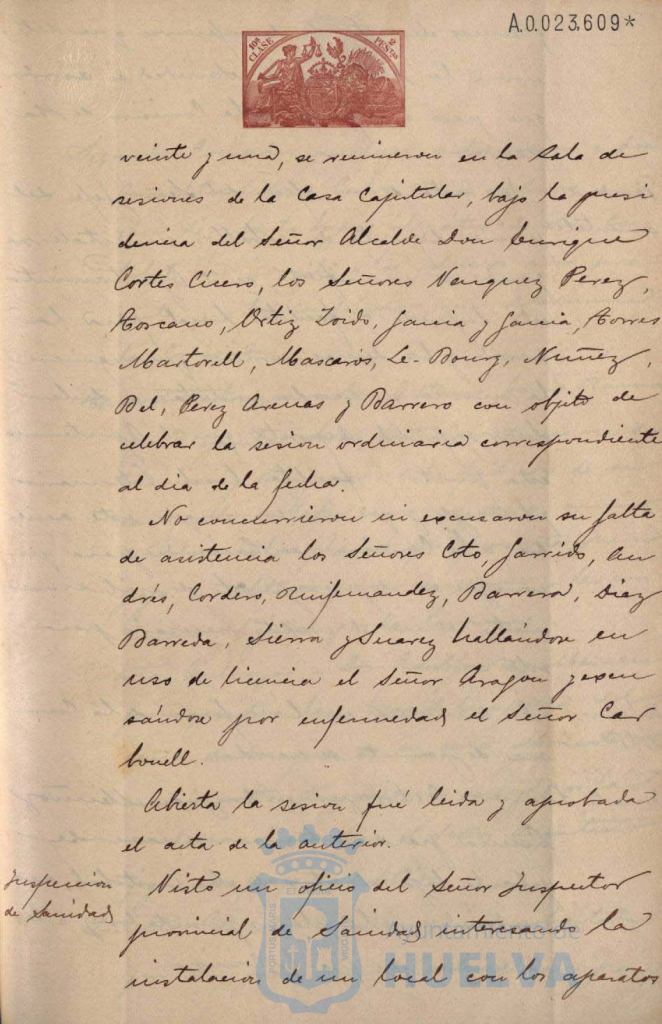 A.0.023,609*
10ª CLASE 2 PESETAS
veinte y una, se reunieron en la Sala de
sesiones de la Casa Capitular, bajo la presi
dencia del Señor Alcalde Don Enrique
Cortes Cícero, los Señores Vazquez Perez,
Toscano, Ortiz Zoido, Garcia y Garcia, Torres
Martorell, Mascarós, Le-Bourg, Nuñez,
Bel, Perez Arenas y Barrero con objto de
celebrar la sesion ordinaria correspondiente
al dia de la fecha.
No concurrieron ni excusaron su falta
de asistencia los Señores Coto, Garrido, An
drés, Cordero, Ruifernandez, Barrera, Diaz
Barreda, Sierra y Suarez hallándose en
uso de licencia el Señor Aragon y excu
sándose por enfermedad el Señor Car
bonell.
Abierta la sesion fué leida y aprobada
el acta de la anterior.
Inspeccion
de Sanidad
Visto un oficio del Señor Inspector
provincial de Sanidad interesando la
instalacion de un local con los aparatos
Ayuntamiento de
HUELVA